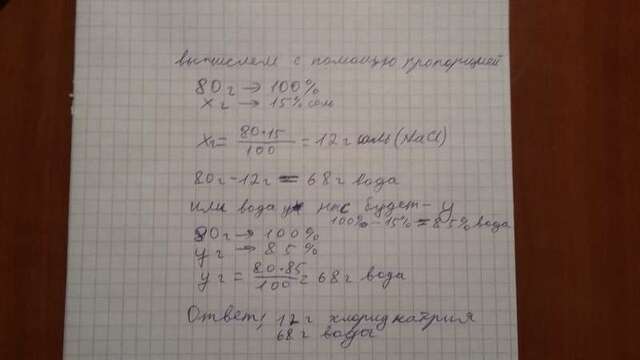 вычисляем с помощью пропорций
80г → 100%
Xг → 15% соли
Xг = 80·15 / 100 = 12г соли (NaCl)
80г - 12г = 68г вода
или вода у нас будет -
100% - 15% = 85% вода
80г → 100%
Yг → 85%
Yг = 80·85 / 100 = 68г вода
Ответ: 12г хлорид натрия
68г вода